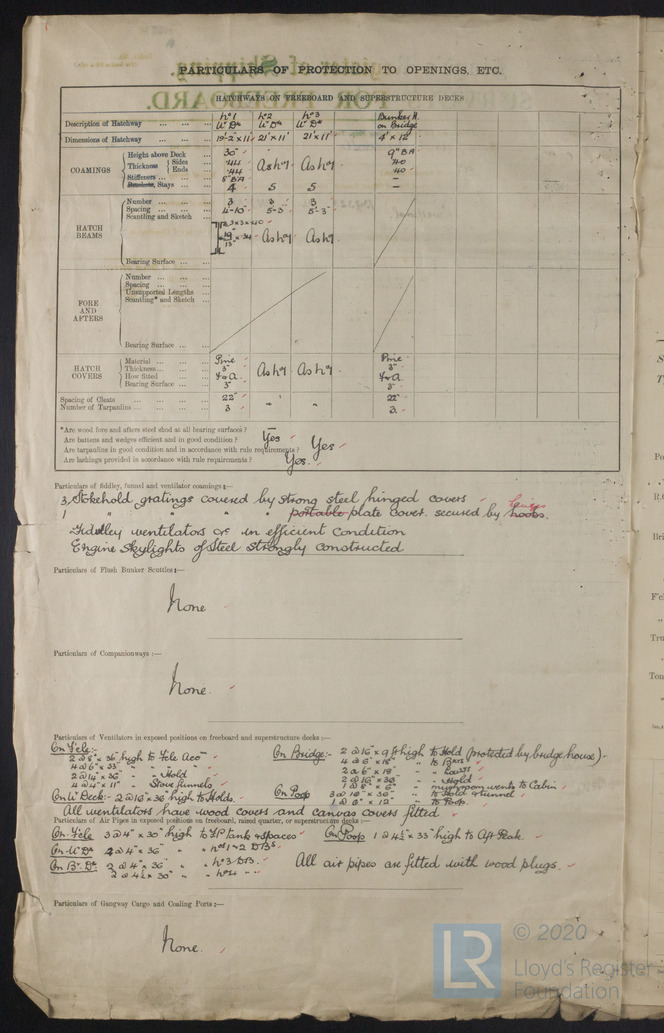 PARTICULARS OF PROTECTION TO OPENINGS, ETC.
HATCHWAYS ON FREEBOARD AND SUPERSTRUCTURE DECKS
Description of Hatchway No 1 U Dk No 2 U Dk No 3 U Dk Bunker H. on Bridge
Dimensions of Hatchway 19'-2" x 11' 21' x 11' 21' x 11' 4' x 12'
COAMINGS
Height above Deck 30" 9" BA
Thickness Sides .44 As No 1 As No 1 .40
Ends .44 .40
Stiffeners 8" BA –
Brackets, Stays 4 5 5 –
HATCH BEAMS
Number 3 3 3
Spacing 4-10" 5-3" 5-3"
Scantling and Sketch As No 1 As No 1
Bearing Surface
FORE AND AFTERS
Number
Spacing
Unsupported Lengths
Scantling* and Sketch
Bearing Surface
HATCH COVERS
Material Pine Pine
Thickness 3" As No 1 As No 1 3"
How fitted F&A F&A
Bearing Surface 3" 3"
Spacing of Cleats 22" " " 22"
Number of Tarpaulins 3 3
*Are wood fore and afters steel shod at all bearing surfaces?
Are battens and wedges efficient and in good condition? Yes
Are tarpaulins in good condition and in accordance with rule requirements? Yes
Are lashings provided in accordance with rule requirements? Yes.
Particulars of fiddley, funnel and ventilator coamings:—
3 Stokehold gratings covered by strong steel hinged covers
1 " " " " portable plate cover secured by hooks.
Fiddley ventilators are in efficient condition
Engine Skylights of steel strongly constructed
Particulars of Flush Bunker Scuttles:—
None
Particulars of Companionways:—
None.
Particulars of Ventilators in exposed positions on freeboard and superstructure decks:—
On Fcle:- 2 @ 8" x 36" high to Fcle Acc
4 @ 6" x 33" " "
2 @ 14" x 36" " Hold
4 @ 4" x 11" " Stove funnels
On U Deck:- 2 @ 16" x 36" high to Holds.
On Bridge:- 2 @ 16" x 9 ft high to Hold (protected by bridge house)
4 @ 6" x 18" " to
2 @ 6" x 18" "
2 @ 16" x 36" " Hold
1 @ 8" x 6" " mushroom vents to Cabin
On Poop 3 @ 16" x 36" " to Hold & tunnel
1 @ 6" x 12" " to Poop.
All ventilators have wood covers and canvas covers fitted
Particulars of Air Pipes in exposed positions on freeboard, raised quarter, or superstructure decks:—
On Fcle 3 @ 4" x 30" high to FP tank & spaces
On U Dk 4 @ 4" x 36" " " No 1 & 2 DBs
On B. Dk 2 @ 4" x 36" " " No 3 DB.
2 @ 4½ x 30" " " No 4 " "
On Poop 1 @ 4½" x 33" high to Aft Peak.
All air pipes are fitted with wood plugs.
Particulars of Gangway Cargo and Coaling Ports:—
None.
LR
© 2020
Lloyd's Register
Foundation